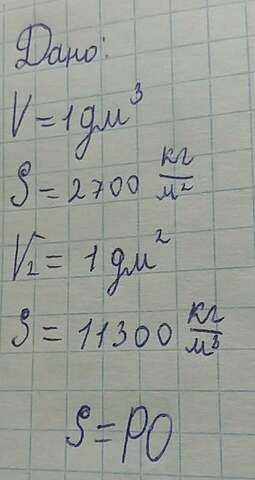 Дано:
V = 1 дм³
S = 2700 кг/м²
V₂ = 1 дм²
S = 11300 кг/м³
S = PO